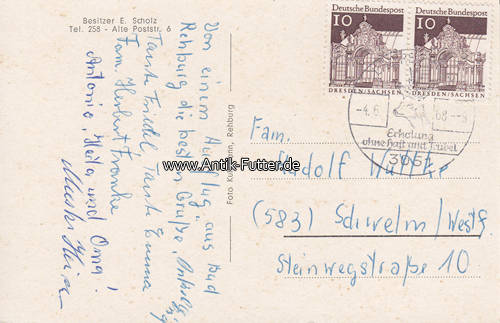 Besitzer E. Scholz
Tel. 258 - Alte Poststr. 6
Von einem Ausflug aus Bad
Rehburg die besten Grüße,
Tante Friedel, Tante Emma
Fam. Herbert Franke
Antonie, und Oma!
Foto Kuhlmann, Rehburg
Deutsche Bundespost
10
DRESDEN/SACHSEN
Deutsche Bundespost
10
DRESDEN/SACHSEN
-4.6. 68-8
Erholung
ohne Hast und Trubel
3057
www.Antik-Futter.de
Fam.
Rudolf
(583) Schwelm/Westf
Steinwegstraße 10